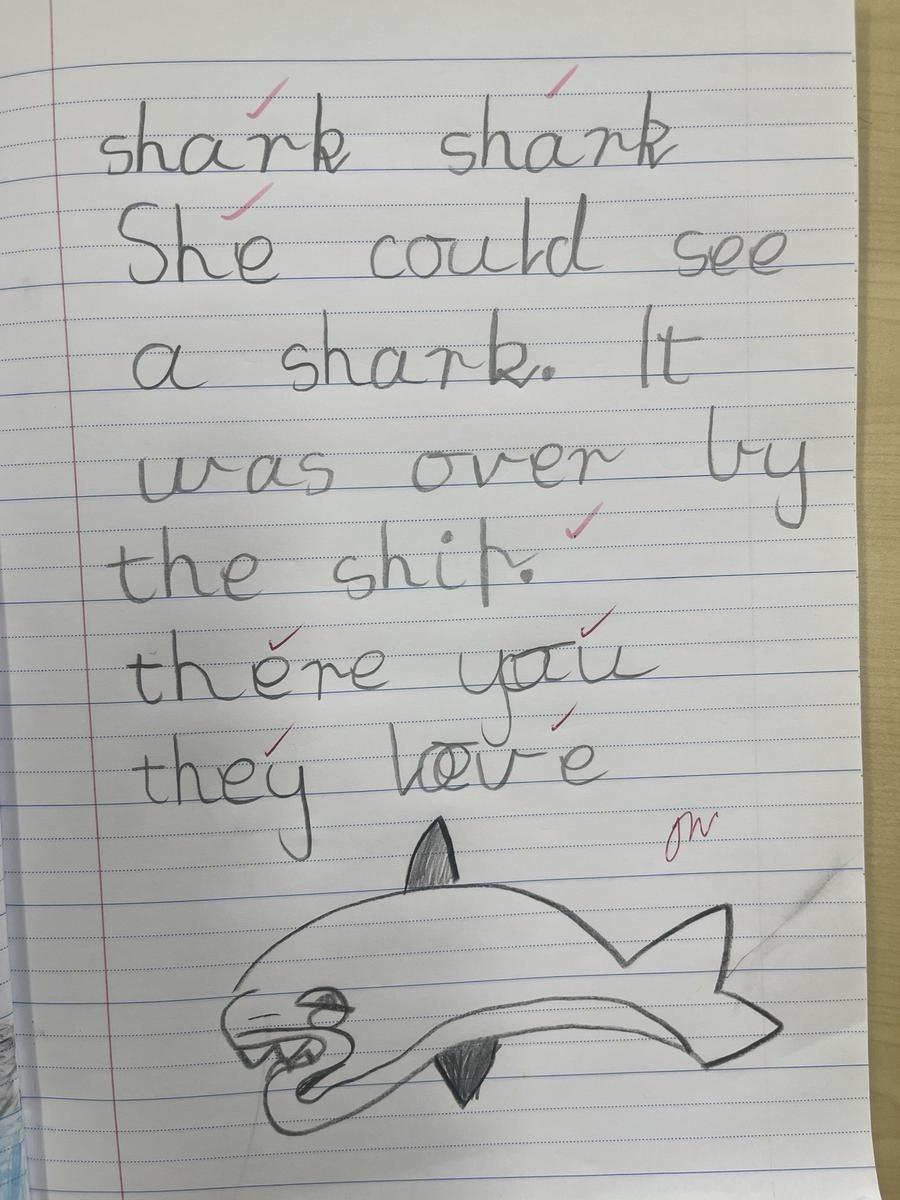 shark shark
She could see
a shark. It
was over by
the ship.
there you
they love